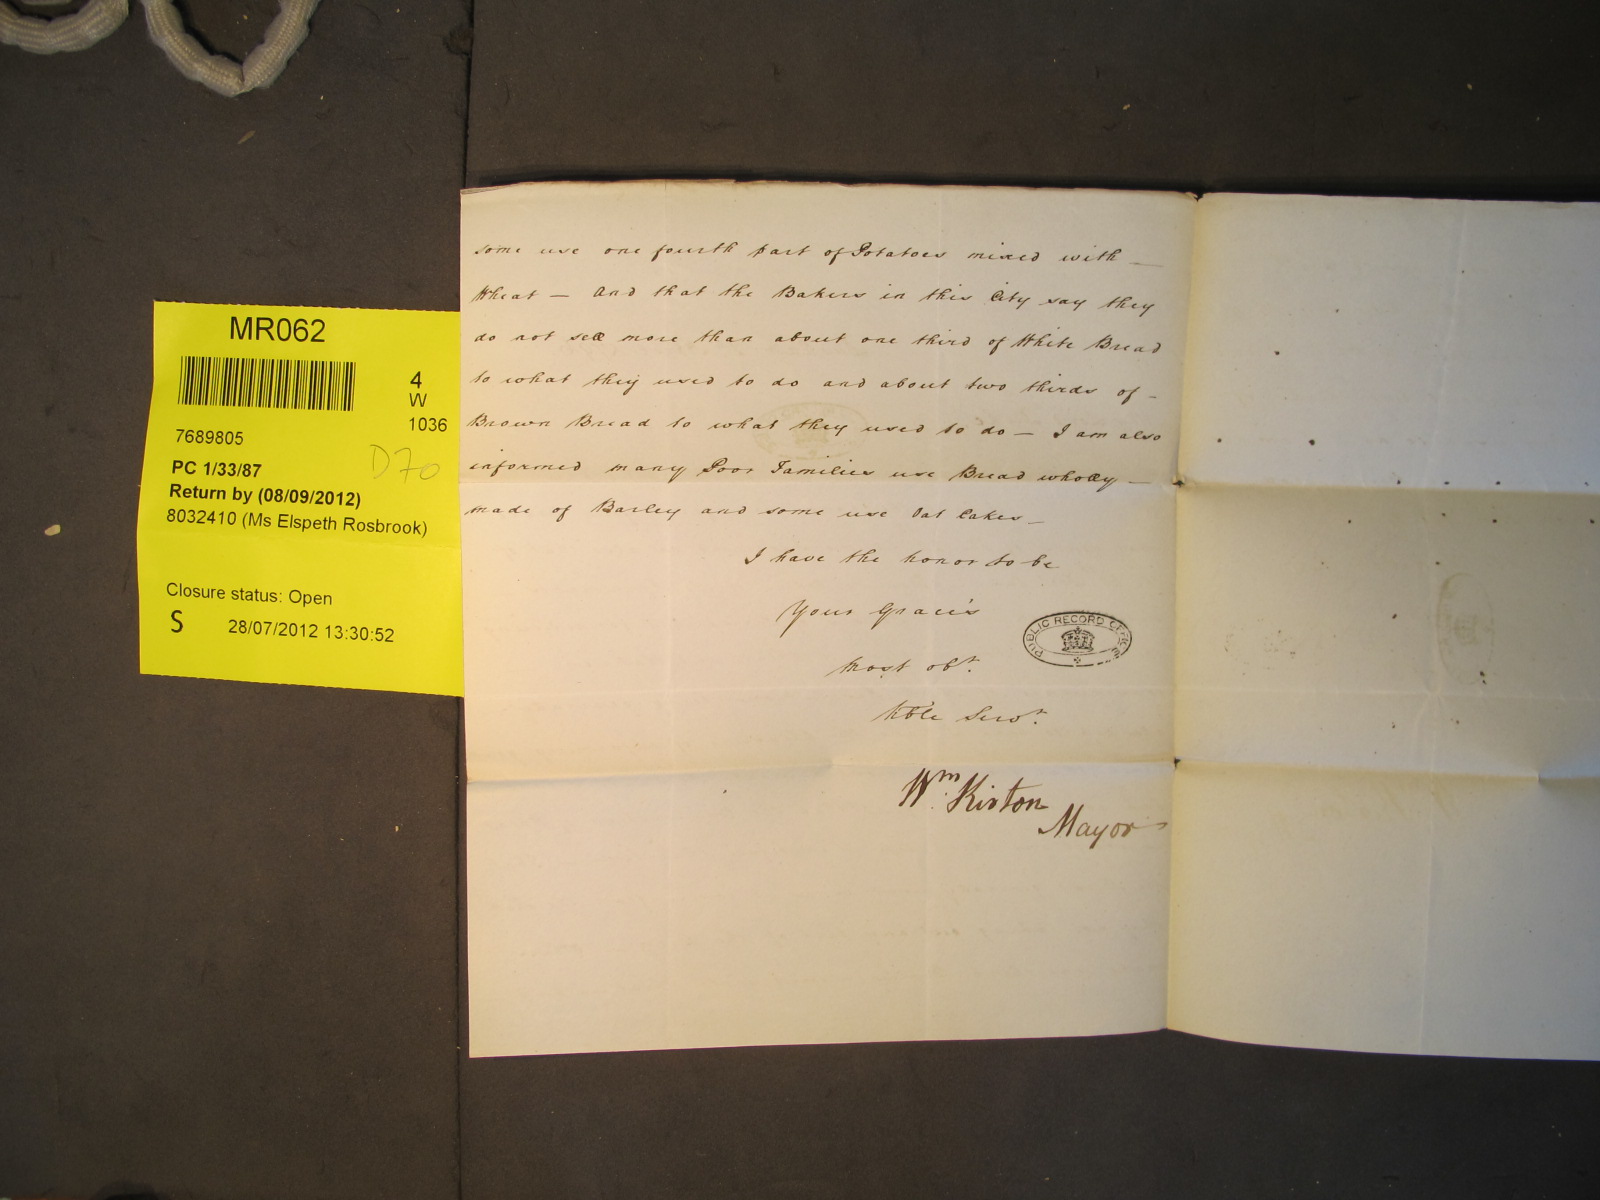 some use one fourth part of Potatoes mixed with —
Wheat — And that the Bakers in this City say they
do not sell more than about one third of White Bread
to what they used to do and about two thirds of -
Brown Bread to what they used to do — I am also
informed many Poor Families use Bread wholly —
made of Barley and some use Oat Cakes —
I have the honor to be
Your Grace's
Most obt.
Hble Servt.
Wm. Kirton
Mayor
PUBLIC RECORD OFFICE
MR062
4
W
1036
7689805
D70
PC 1/33/87
Return by (08/09/2012)
8032410 (Ms Elspeth Rosbrook)
Closure status: Open
S 28/07/2012 13:30:52